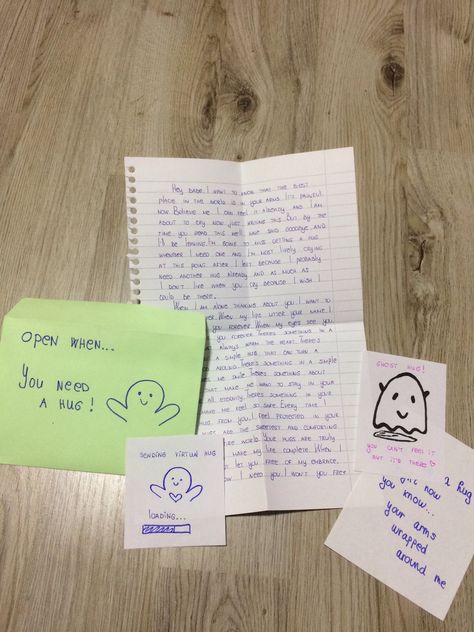 HEY, BABE. I WANT TO KNOW THAT THE BEST
PLACE IN THE WORLD IS IN YOUR ARMS. IT'S PAINFUL
NOW. BELIEVE ME I CAN FEEL IT ALREADY AND I AM
ABOUT TO CRY NOW JUST WRITING THIS. BUT BY THE
TIME YOU READ THIS WE'LL HAVE SAID GOODBYE AND
I'LL BE LEAVING. I'M GOING TO MISS GETTING A HUG
WHETHER I NEED ONE AND I'M MOST LIKELY CRYING
AT THIS POINT AFTER I LEFT BECAUSE I PROBABLY
NEED ANOTHER HUG ALREADY AND AS MUCH AS
I DON'T LIKE WHEN YOU CRY BECAUSE I WISH I
COULD BE THERE.
WHEN I AM ALONE THINKING ABOUT YOU I WANT TO
WHEN MY LIPS UTTER YOUR NAME I
YOU FOREVER. WHEN MY EYES SEE YOU
FOREVER. THERE'S SOMETHING IN A
ALWAYS WARM THE HEART. THERE'S
A SIMPLE HUG THAT CAN TURN A
AROUND. THERE'S SOMETHING IN A SIMPLE
ME SMILE. THERE'S SOMETHING ABOUT
THAT MAKE ME WANT TO STAY IN YOUR
ALL ETERNITY. THERE'S SOMETHING IN YOUR
MAKE ME FEEL SO SAFE. EVERY TIME I
HUG FROM YOU, I FEEL PROTECTED. IN YOUR
HUGS ARE THE SWEETEST AND COMFORTING
WORLD. YOUR HUGS ARE TRULY
MAKE MY LIFE COMPLETE. WHEN I
LET YOU FREE OF MY EMBRACE.
I NEED YOU. I WON'T YOU FREE
OPEN WHEN...
YOU NEED
A HUG!
SENDING VIRTUAL HUG
LOADING...
GHOST HUG!
YOU CAN'T FEEL IT
BUT IT'S THERE
a hug
now
you know..
your arms
wrapped
around me